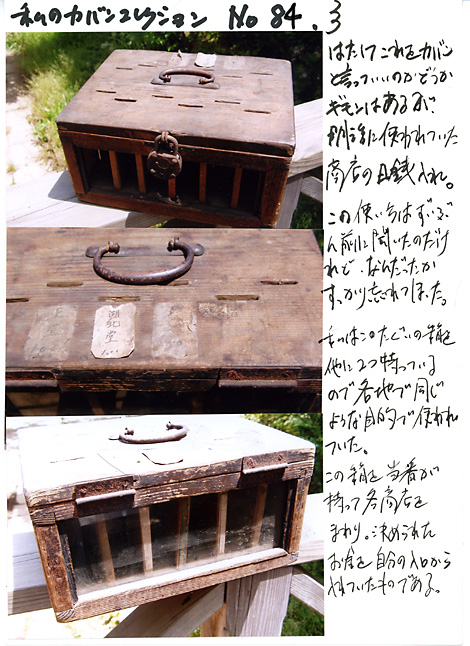 私のカバンコレクション No 84.3
はたしてこれをカバン
と言っていいのかどうか
ギモンはあるが、
明治に使われていた
商店の日銭入れ。
この使い方はずいぶ
ん前に聞いたのだけ
れど、なんだったか
すっかり忘れてしまった。
私はこのたぐいの箱を
他に2つ持っている
ので各地で同じ
ような目的で使われ
ていた。
この箱を当番が
持って各商店を
まわり。決められた
お金を自分の入口から
入れていたものである。